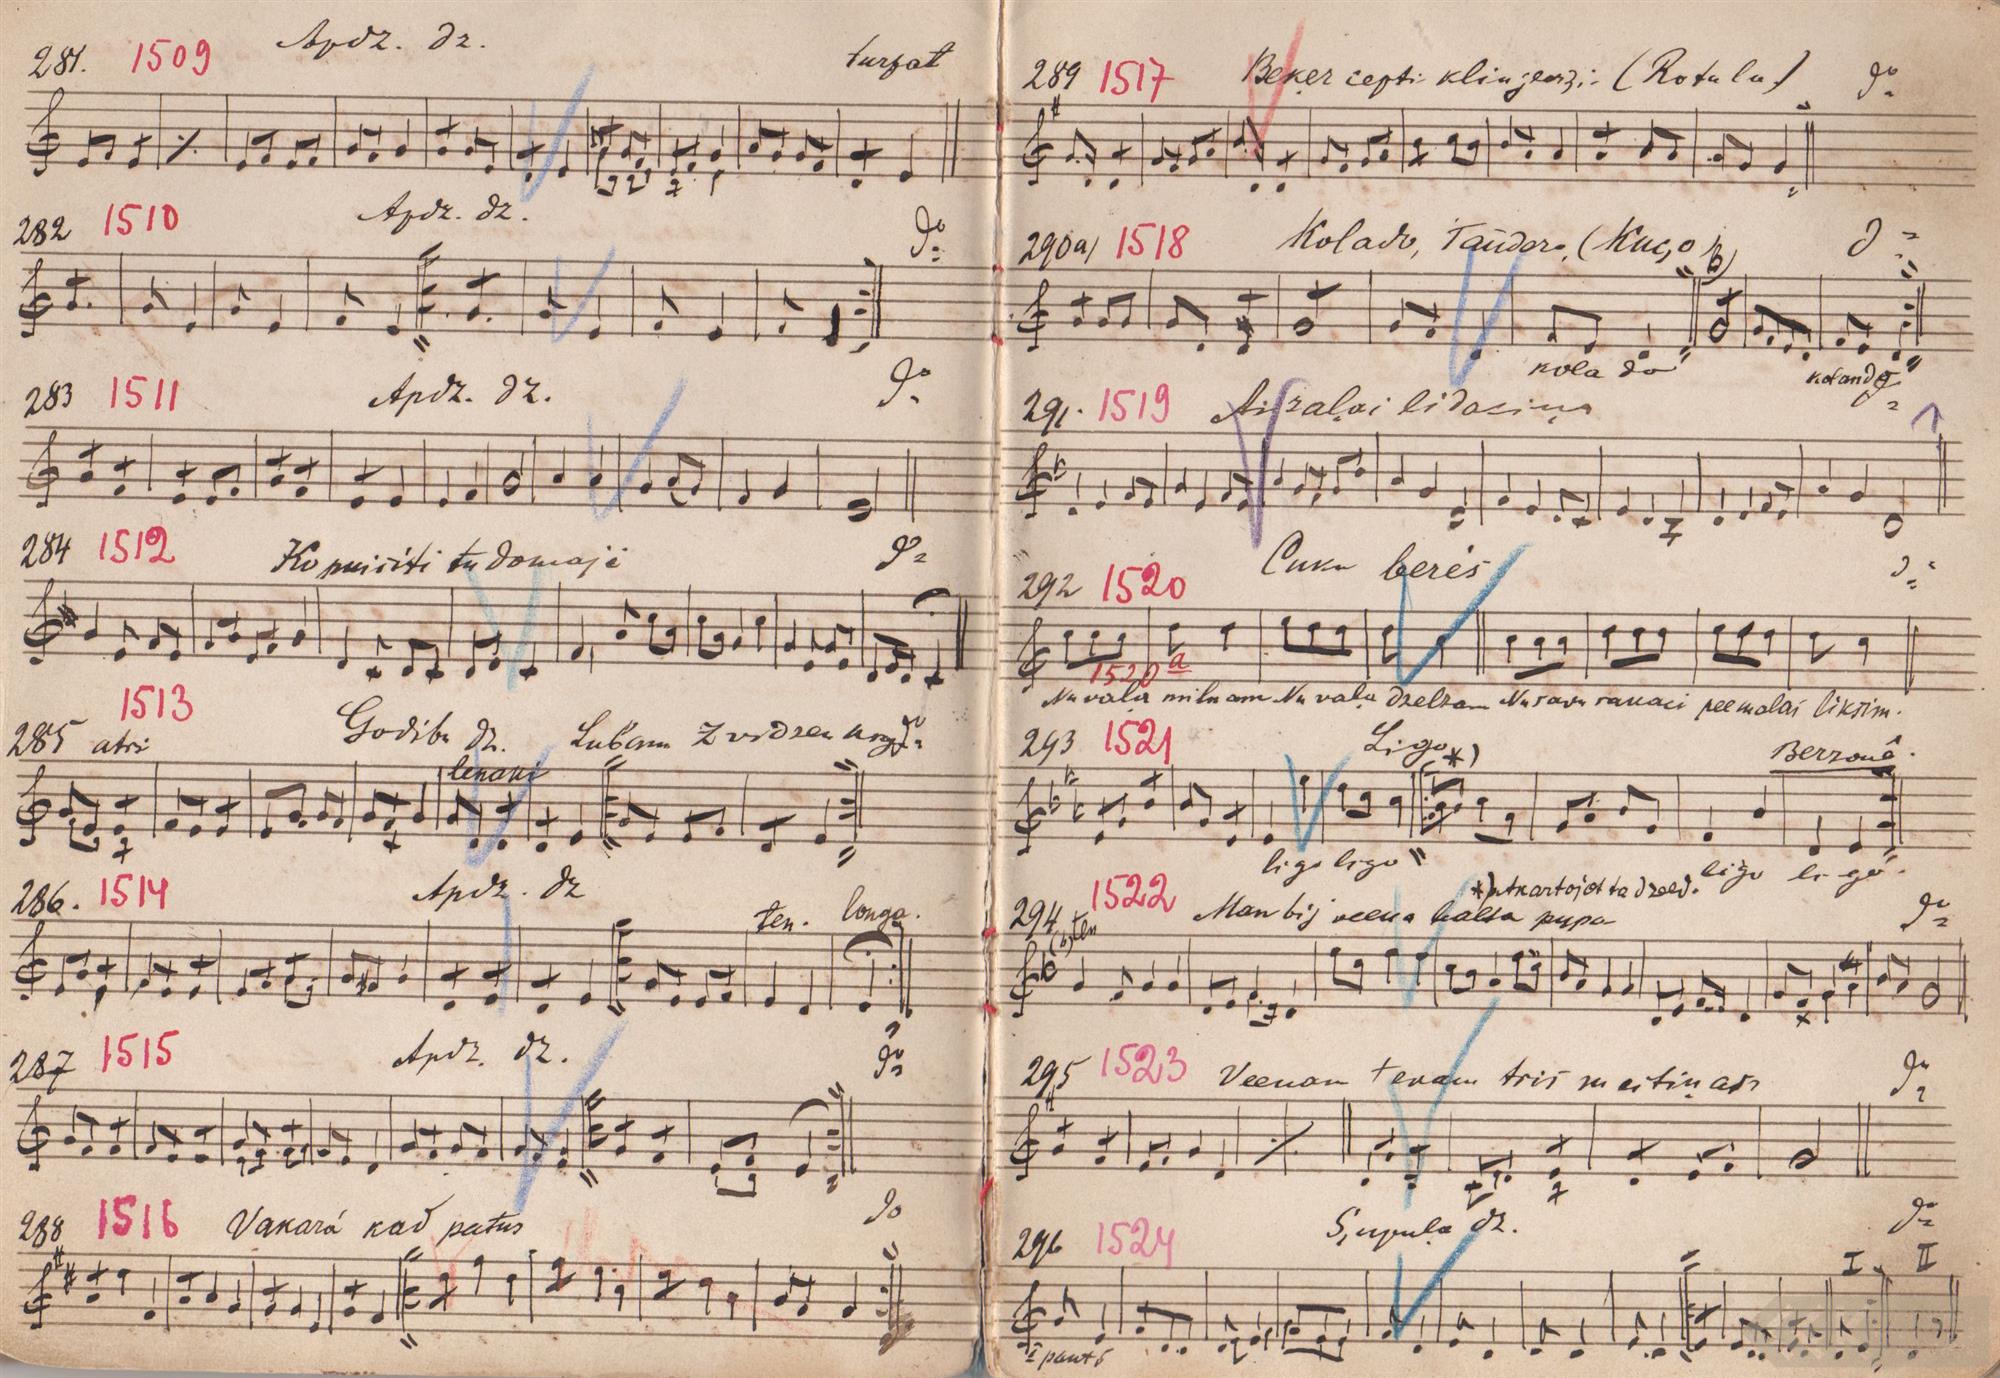 281. 1509 Apdz. dz. turpat
282 1510 Apdz. dz. do
283 1511 Apdz. dz. do
284 1512 Ko puisīti tu domaji do
285 1513 atri Godību dz. Lubānu Zvidzenu
lenaki
286. 1514 Apdz. dz
ten. longa.
287 1515 Apdz. dz. do
288 1516 Vakarā kad patus do
289 1517 Beķer cepti klinģerži (Rotula) do
290a) 1518 Kolado, Taudero, (Kuço b)
kola do kolando
291. 1519 Aizalai lidaciņa
292 1520 Cuku berēs
1520 a
Nu vaļa milnam Nu vaļa dzelzam Nu savu sauaci peemalai liksim.
293 1521 Ligo *) Berzonē.
ligo ligo ligo li-go.
*) atkartojot ta dzeed.
294 1522 ten Man bij veena balta pupa do
295 1523 Veenam tevam tris meitiņas do
296 1524 Supuļa dz. do
I II
I pants